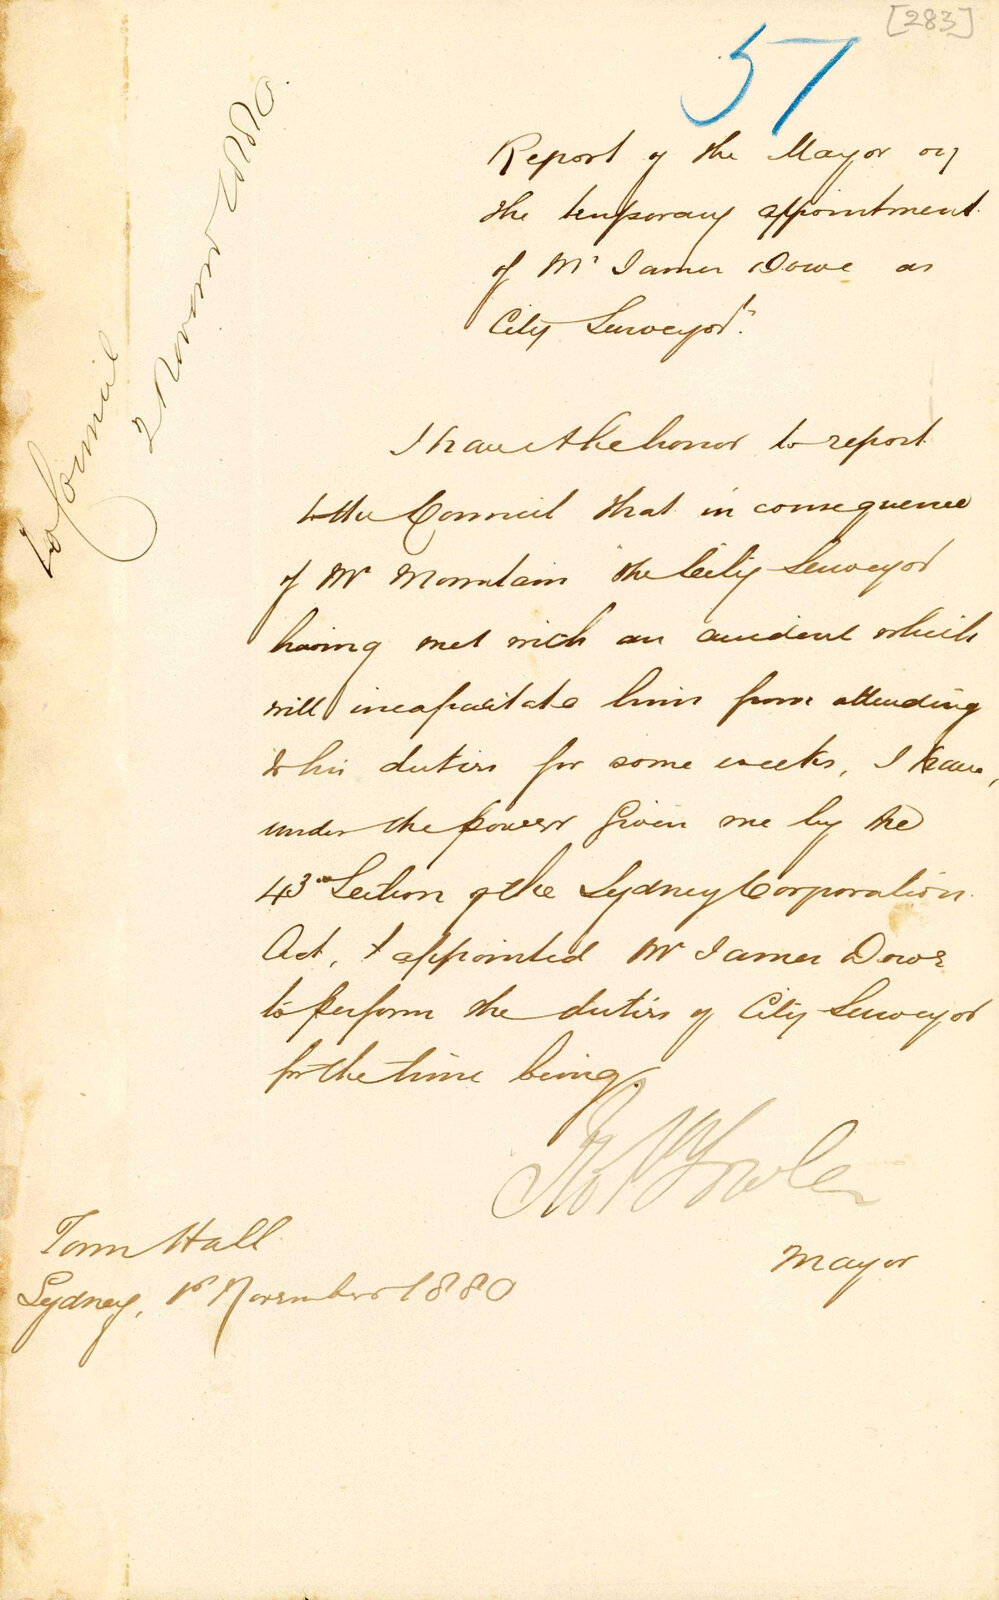 [283]
57
Report of the Mayor on
the temporary appointment
of Mr James Dowe as
City Surveyor.
To Council
2 November 1880.
I have the honor to report
to the Council that in consequence
of Mr Mountain the City Surveyor
having met with an accident which
will incapacitate him from attending
to his duties for some weeks, I have,
under the power given me by the
43rd Section of the Sydney Corporation
Act, appointed Mr James Dowe
to perform the duties of City Surveyor
for the time being.
Fowler
Mayor
Town Hall
Sydney, 1st November 1880